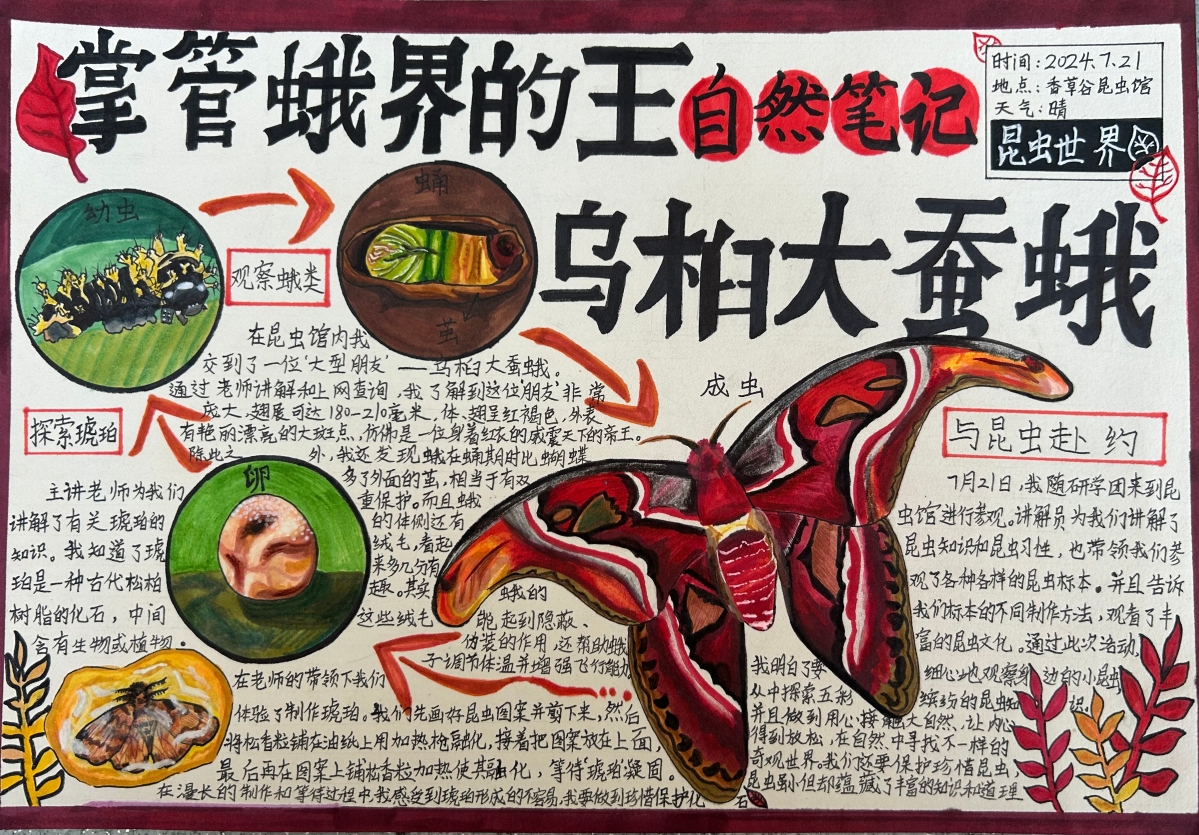 掌管蛾界的王自然笔记
时间:2024.7.21
地点:香草谷昆虫馆
天气:晴
昆虫世界
乌桕大蚕蛾
幼虫
蛹
茧
成虫
卵
观察蛾类
在昆虫馆内我
交到了一位'大型朋友'——乌桕大蚕蛾。
通过老师讲解和上网查询,我了解到这位'朋友'非常
庞大,翅展可达180-210毫米,体、翅呈红褐色,外表
有艳丽漂亮的大斑点,仿佛是一位身着红衣的威震天下的帝王。
除此之外,我还发现蛾在蛹期时比蝴蝶
多了外面的茧,相当于有双
重保护。而且蛾
的体侧还有
绒毛,看起
来多几分有
趣。其实蛾的
这些绒毛能起到隐蔽、
伪装的作用,还帮助蛾
子调节体温并增强飞行能力
探索琥珀
主讲老师为我们
讲解了有关琥珀的
知识。我知道了琥
珀是一种古代松柏
树脂的化石,中间
含有生物或植物。
在老师的带领下我们
体验了制作琥珀。我们先画好昆虫图案并剪下来,然后
将松香粒铺在油纸上用加热枪融化,接着把图案放在上面,
最后再在图案上铺松香粒加热使其融化,等待'琥珀'凝固。
在漫长的制作和等待过程中,我感受到琥珀形成的不容易,我要做到珍惜保护化石
与昆虫赴约
7月21日,我随研学团来到昆
虫馆进行参观。讲解员为我们讲解了
昆虫知识和昆虫习性,也带领我们参
观了各种各样的昆虫标本。并且告诉
我们标本的不同制作方法,观看了丰
富的昆虫文化。通过此次活动,
我明白了要细心地观察身边的小昆虫
从中探索五彩缤纷的昆虫知识。
并且做到用心接触大自然,让内心
得到放松,在自然中寻找不一样的
奇观世界。我们还要保护珍惜昆虫,
昆虫虽小但却蕴藏了丰富的知识和道理